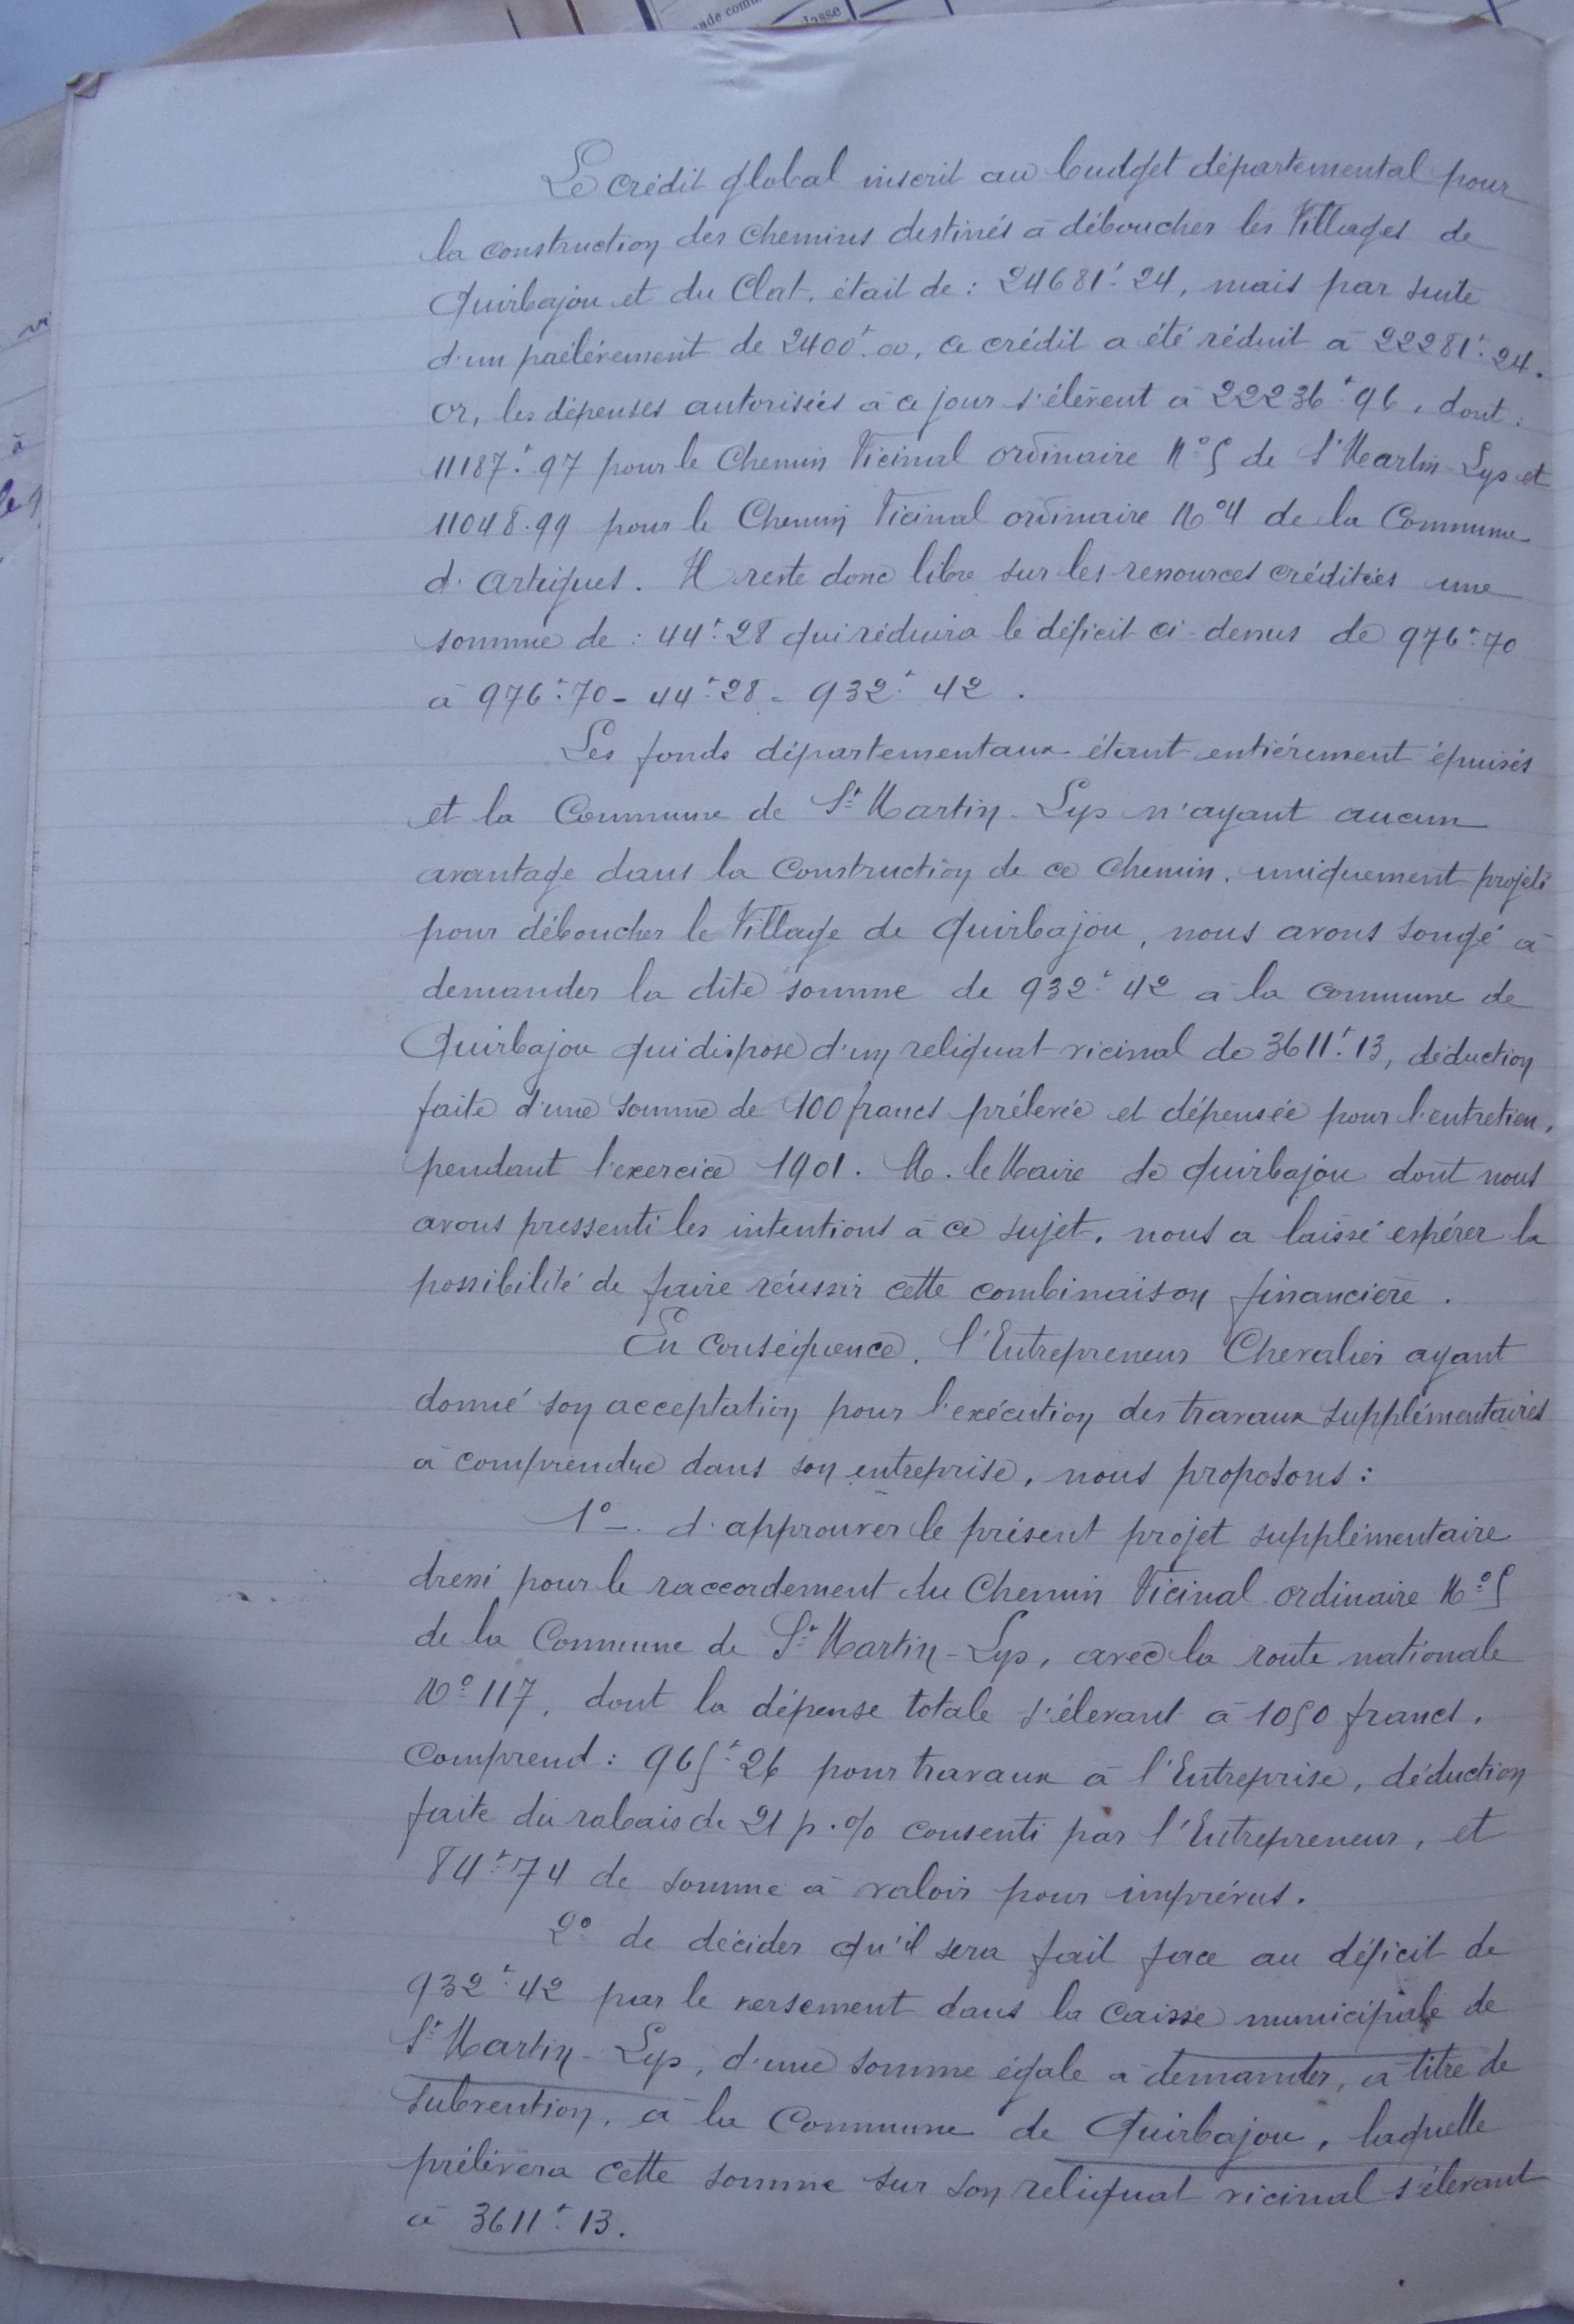 nde comm
lasse
Le crédit global inscrit au budget départemental pour
la construction des chemins destinés à déboucher les Villages de
Quirbajou et du Clat, était de : 24681f.24, mais par suite
d'un prélèvement de 2400f.00, ce crédit a été réduit à 22281f.24.
or, les dépenses autorisées à ce jour s'élèvent à 22236f.96, dont :
11187f.97 pour le Chemin Vicinal ordinaire N° 5 de St Martin-Lys et
11048.99 pour le Chemin Vicinal ordinaire N° 4 de la Commune
d'Artigues. Il reste donc libre sur les ressources créditées une
somme de : 44f.28 qui réduira le déficit ci-dessus de 976f.70
à 976f.70 - 44f.28 = 932f.42.
Les fonds départementaux étant entièrement épuisés
et la Commune de St Martin-Lys n'ayant aucun
avantage dans la construction de ce chemin, uniquement projeté
pour déboucher le Village de Quirbajou, nous avons songé à
demander la dite somme de 932f.42 à la commune de
Quirbajou qui dispose d'un reliquat vicinal de 3611f.13, déduction
faite d'une somme de 100 francs prélevée et dépensée pour l'entretien,
pendant l'exercice 1901. M. le Maire de Quirbajou dont nous
avons pressenti les intentions à ce sujet, nous a laissé espérer la
possibilité de faire réussir cette combinaison financière.
En conséquence, l'Entrepreneur Chevalier ayant
donné son acceptation pour l'exécution des travaux supplémentaires
à comprendre dans son entreprise, nous proposons :
1° - d'approuver le présent projet supplémentaire
dressé pour le raccordement du Chemin Vicinal ordinaire N° 5
de la Commune de St Martin-Lys, avec la route nationale
N° 117, dont la dépense totale s'élevant à 1050 francs,
comprend : 965f.26 pour travaux à l'Entreprise, déduction
faite du rabais de 21 p.% consenti par l'Entrepreneur, et
84f.74 de somme à valoir pour imprévus.
2° de décider qu'il sera fait face au déficit de
932f.42 par le versement dans la caisse municipale de
St Martin-Lys, d'une somme égale à demander, à titre de
subvention, à la Commune de Quirbajou, laquelle
prélèvera cette somme sur son reliquat vicinal s'élevant
à 3611f.13.